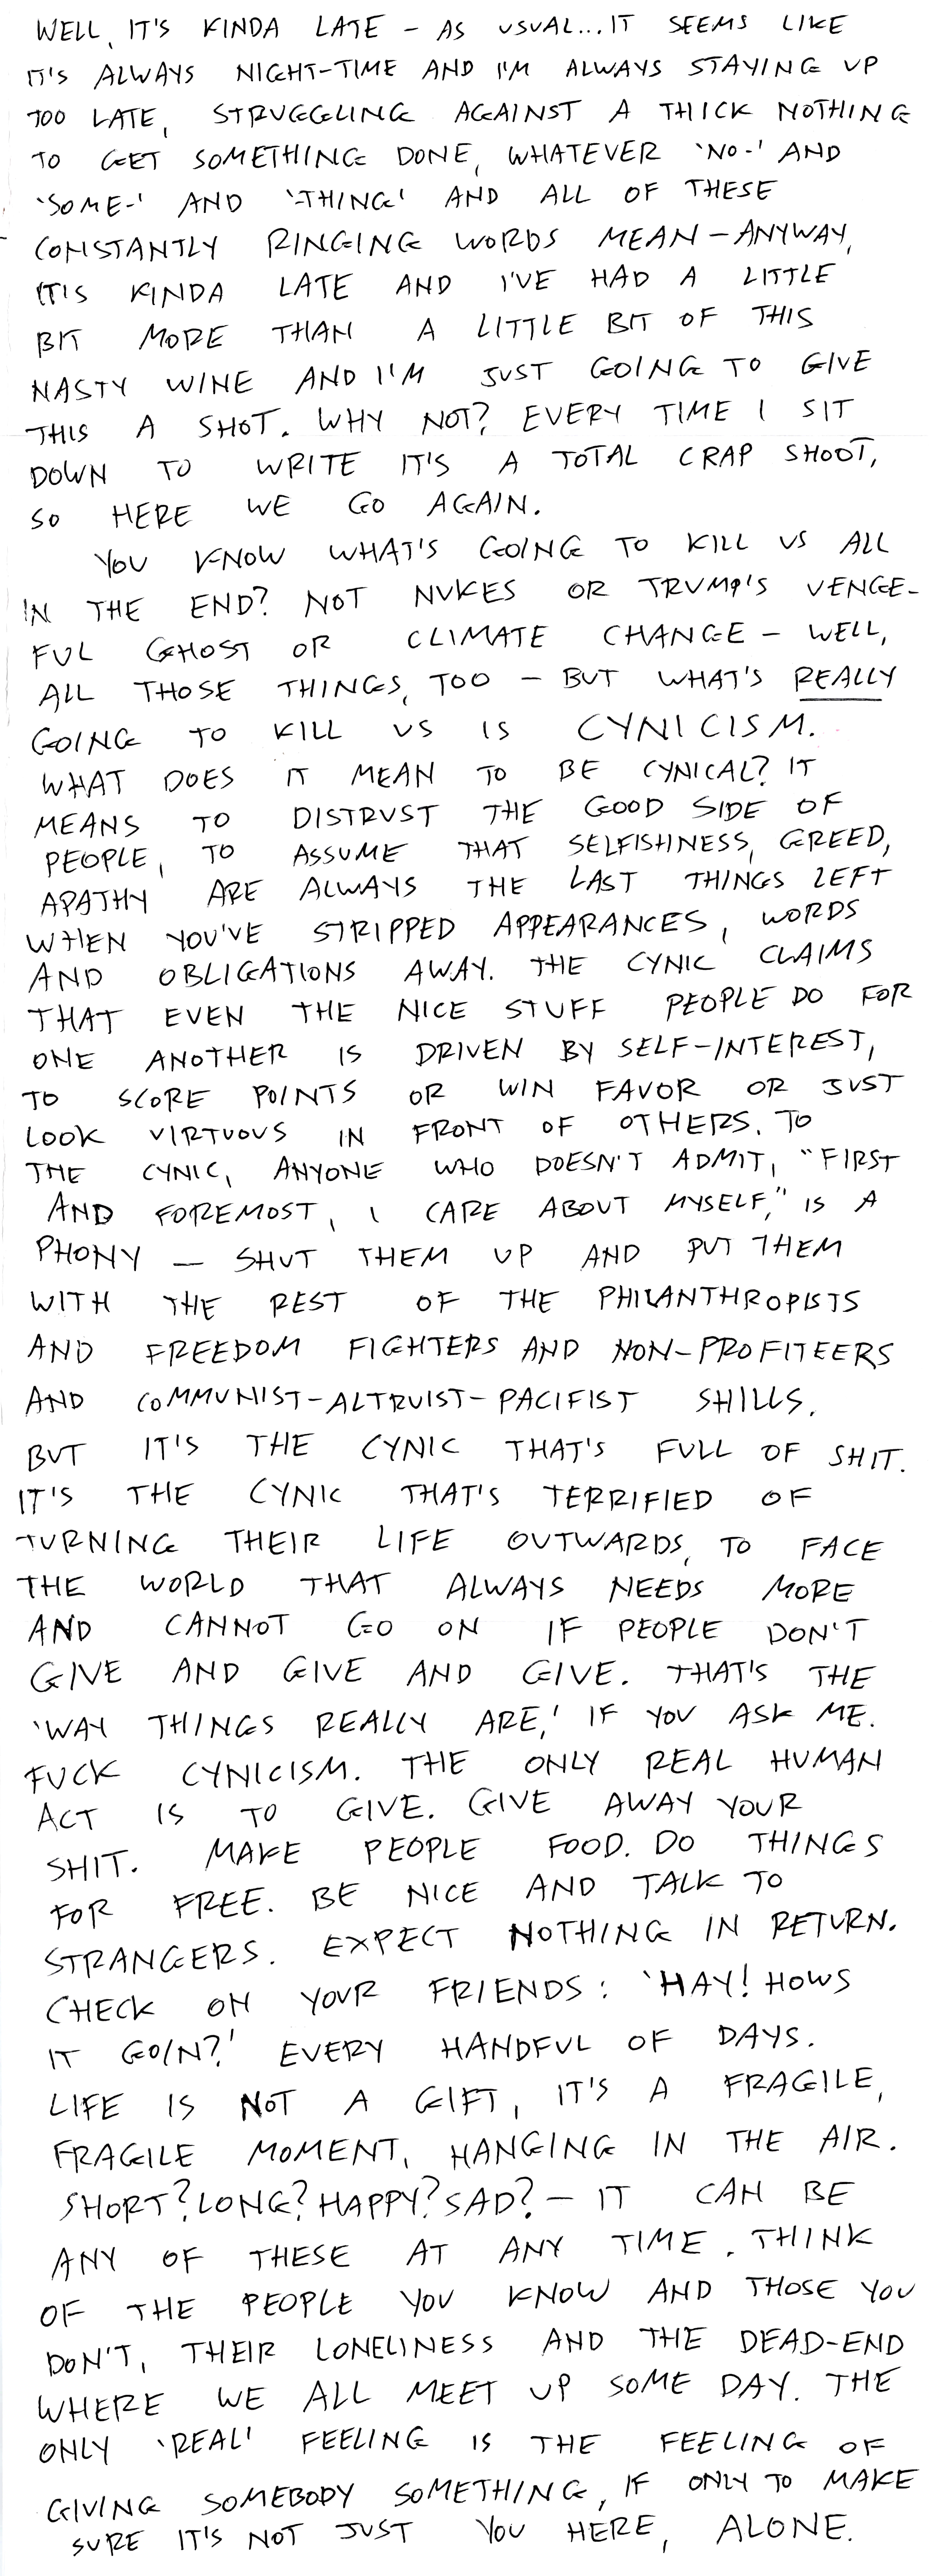 WELL, IT'S KINDA LATE – AS USUAL...IT SEEMS LIKE
IT'S ALWAYS NIGHT-TIME AND I'M ALWAYS STAYING UP
TOO LATE, STRUGGLING AGAINST A THICK NOTHING
TO GET SOMETHING DONE, WHATEVER 'NO-' AND
'SOME-' AND '-THING' AND ALL OF THESE
CONSTANTLY RINGING WORDS MEAN – ANYWAY,
IT'S KINDA LATE AND I'VE HAD A LITTLE
BIT MORE THAN A LITTLE BIT OF THIS
NASTY WINE AND I'M JUST GOING TO GIVE
THIS A SHOT. WHY NOT? EVERY TIME I SIT
DOWN TO WRITE IT'S A TOTAL CRAP SHOOT,
SO HERE WE GO AGAIN.
YOU KNOW WHAT'S GOING TO KILL US ALL
IN THE END? NOT NUKES OR TRUMP'S VENGE-
FUL GHOST OR CLIMATE CHANGE – WELL,
ALL THOSE THINGS, TOO – BUT WHAT'S REALLY
GOING TO KILL US IS CYNICISM.
WHAT DOES IT MEAN TO BE CYNICAL? IT
MEANS TO DISTRUST THE GOOD SIDE OF
PEOPLE, TO ASSUME THAT SELFISHNESS, GREED,
APATHY ARE ALWAYS THE LAST THINGS LEFT
WHEN YOU'VE STRIPPED APPEARANCES, WORDS
AND OBLIGATIONS AWAY. THE CYNIC CLAIMS
THAT EVEN THE NICE STUFF PEOPLE DO FOR
ONE ANOTHER IS DRIVEN BY SELF-INTEREST,
TO SCORE POINTS OR WIN FAVOR OR JUST
LOOK VIRTUOUS IN FRONT OF OTHERS. TO
THE CYNIC, ANYONE WHO DOESN'T ADMIT, "FIRST
AND FOREMOST, I CARE ABOUT MYSELF," IS A
PHONY – SHUT THEM UP AND PUT THEM
WITH THE REST OF THE PHILANTHROPISTS
AND FREEDOM FIGHTERS AND NON-PROFITEERS
AND COMMUNIST-ALTRUIST-PACIFIST SHILLS.
BUT IT'S THE CYNIC THAT'S FULL OF SHIT.
IT'S THE CYNIC THAT'S TERRIFIED OF
TURNING THEIR LIFE OUTWARDS, TO FACE
THE WORLD THAT ALWAYS NEEDS MORE
AND CANNOT GO ON IF PEOPLE DON'T
GIVE AND GIVE AND GIVE. THAT'S THE
'WAY THINGS REALLY ARE,' IF YOU ASK ME.
FUCK CYNICISM. THE ONLY REAL HUMAN
ACT IS TO GIVE. GIVE AWAY YOUR
SHIT. MAKE PEOPLE FOOD. DO THINGS
FOR FREE. BE NICE AND TALK TO
STRANGERS. EXPECT NOTHING IN RETURN.
CHECK ON YOUR FRIENDS: 'HAY! HOWS
IT GOIN?' EVERY HANDFUL OF DAYS.
LIFE IS NOT A GIFT, IT'S A FRAGILE,
FRAGILE MOMENT, HANGING IN THE AIR.
SHORT? LONG? HAPPY? SAD? – IT CAN BE
ANY OF THESE AT ANY TIME. THINK
OF THE PEOPLE YOU KNOW AND THOSE YOU
DON'T, THEIR LONELINESS AND THE DEAD-END
WHERE WE ALL MEET UP SOME DAY. THE
ONLY 'REAL' FEELING IS THE FEELING OF
GIVING SOMEBODY SOMETHING, IF ONLY TO MAKE
SURE IT'S NOT JUST YOU HERE, ALONE.